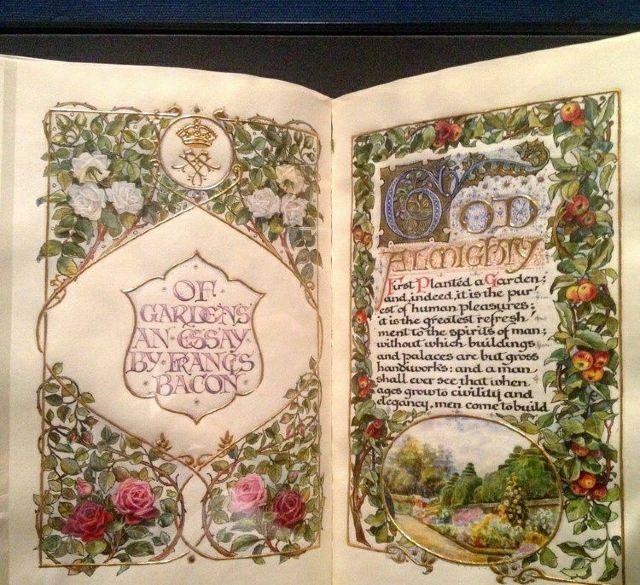 OF
GARDENS
AN·ESSAY
BY·FRANCIS
BACON
GOD
ALMIGHTY
First Planted a Garden;
and, indeed, it is the pur
est of human pleasures:
it is the greatest refresh
ment to the spirits of man;
without which buildings
and palaces are but gross
handiworks: and a man
shall ever see, that when
ages grow to civility and
elegancy, men come to build